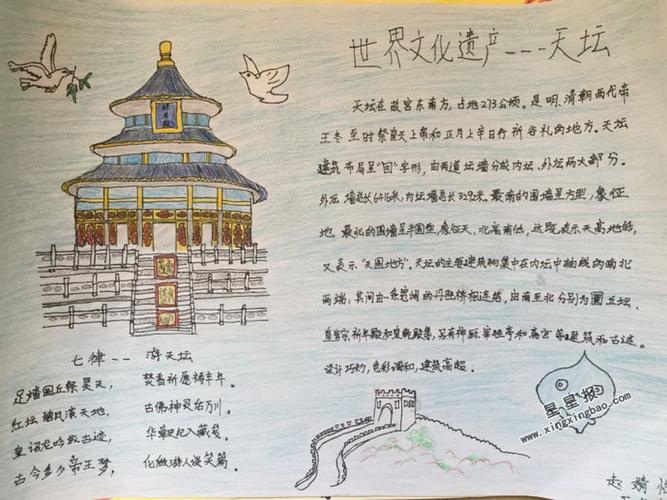 世界文化遗产---天坛
天坛在故宫东南方，占地273公顷。是明、清朝两代帝
王冬至时祭皇天上帝和正月上辛日行祈谷礼的地方。天坛
建筑布局呈"回"字形，由两道坛墙分成内坛、外坛两大部分。
外坛墙总长6416米，内坛墙总长3292米。最南的围墙呈方型，象征
地，最北的围墙呈半圆型，象征天，北高南低，这既表示天高地低，
又表示"天圆地方"。天坛的主要建筑物集中在内坛中轴线的南北
两端，其间由一条宽阔的丹陛桥相连结，由南至北分别为圜丘坛、
皇穹宇祈年殿和皇乾殿等，另有神厨、宰牲亭和斋宫等建筑和古迹。
设计巧妙，色彩调和，建筑高超。
七律--游天坛
足踏圜丘祭昊天，焚香祈愿祷丰年。
红坛 天地，古佛神灵 川。
皇 龙吟 古迹， 入藏 。
古今多少帝王梦，化做游人谈笑篇。
星星报
www.xingxingbao.com
赵